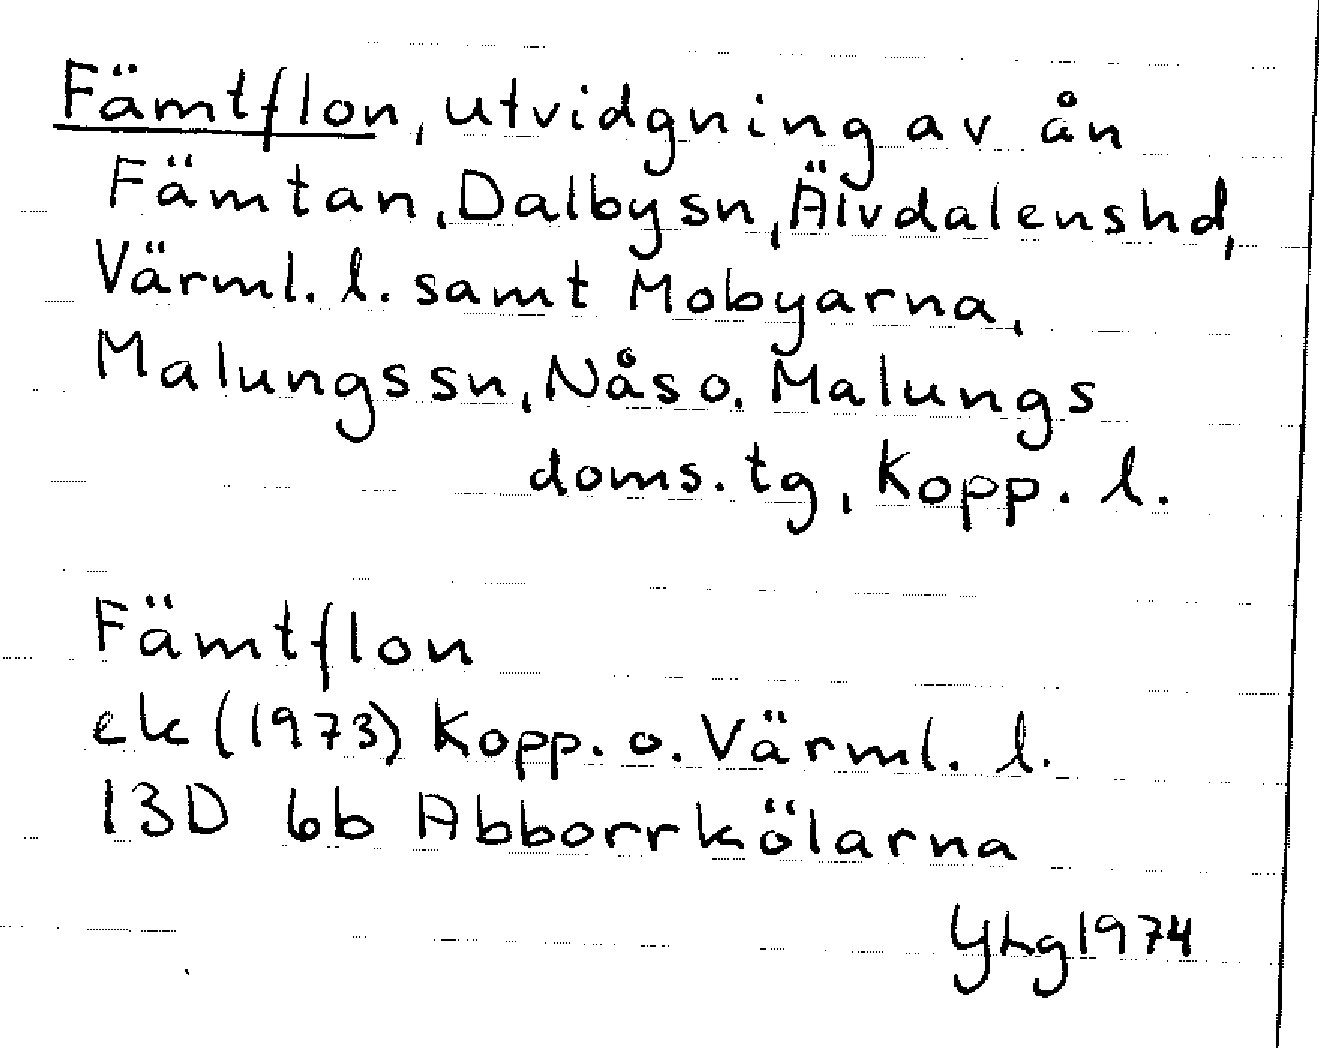 Fämtflon, utvidgning av ån
Fämtan, Dalby sn, Älvdalens hd,
Värml. l. samt Mobyarna,
Malungs sn, Nås o. Malungs
doms. tg, Kopp. l.
Fämtflon
ek (1973) Kopp. o. Värml. l.
13D 6b Abborrkölarna
YLg 1974